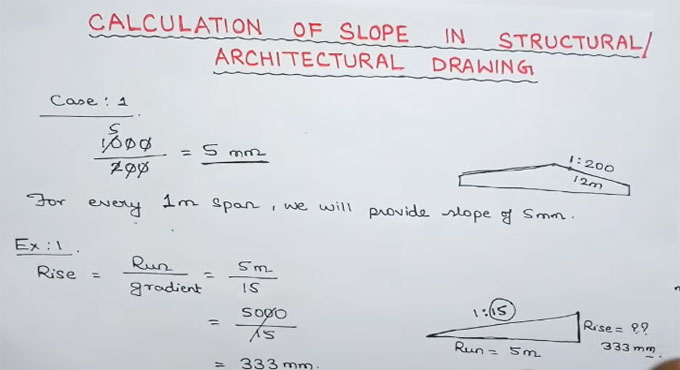 CALCULATION OF SLOPE IN STRUCTURAL/
ARCHITECTURAL DRAWING
Case : 1
5
1000
200
= 5 mm
1:200
12m
For every 1m span, we will provide slope of 5mm.
Ex : 1.
Rise = Run / gradient = 5m / 15
= 5000 / 15
= 333 mm.
1:15
Rise = ??
333 mm
Run = 5m